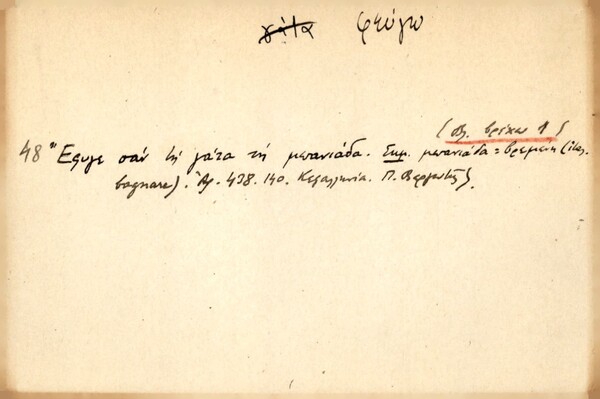 γάτα φεύγω
(Βλ. βρέχω 1)
48 Έφυγε σαν τη γάτα τη μπανιάδα. Σημ. μπανιάδα = βρεμένη (ιταλ.
bagnare). Αρ. 438. 140. Κεφαλληνία. Π. Βεργωτής).